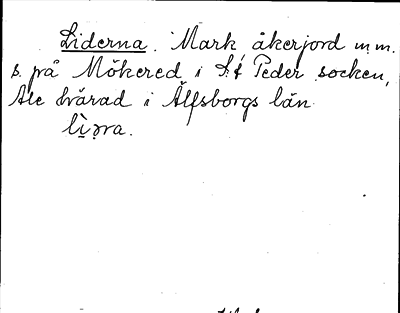 Liderna. Mark åkerjord m.m.
s. på Mökered i S:t Peder socken,
Ale härad i Älfsborgs län.